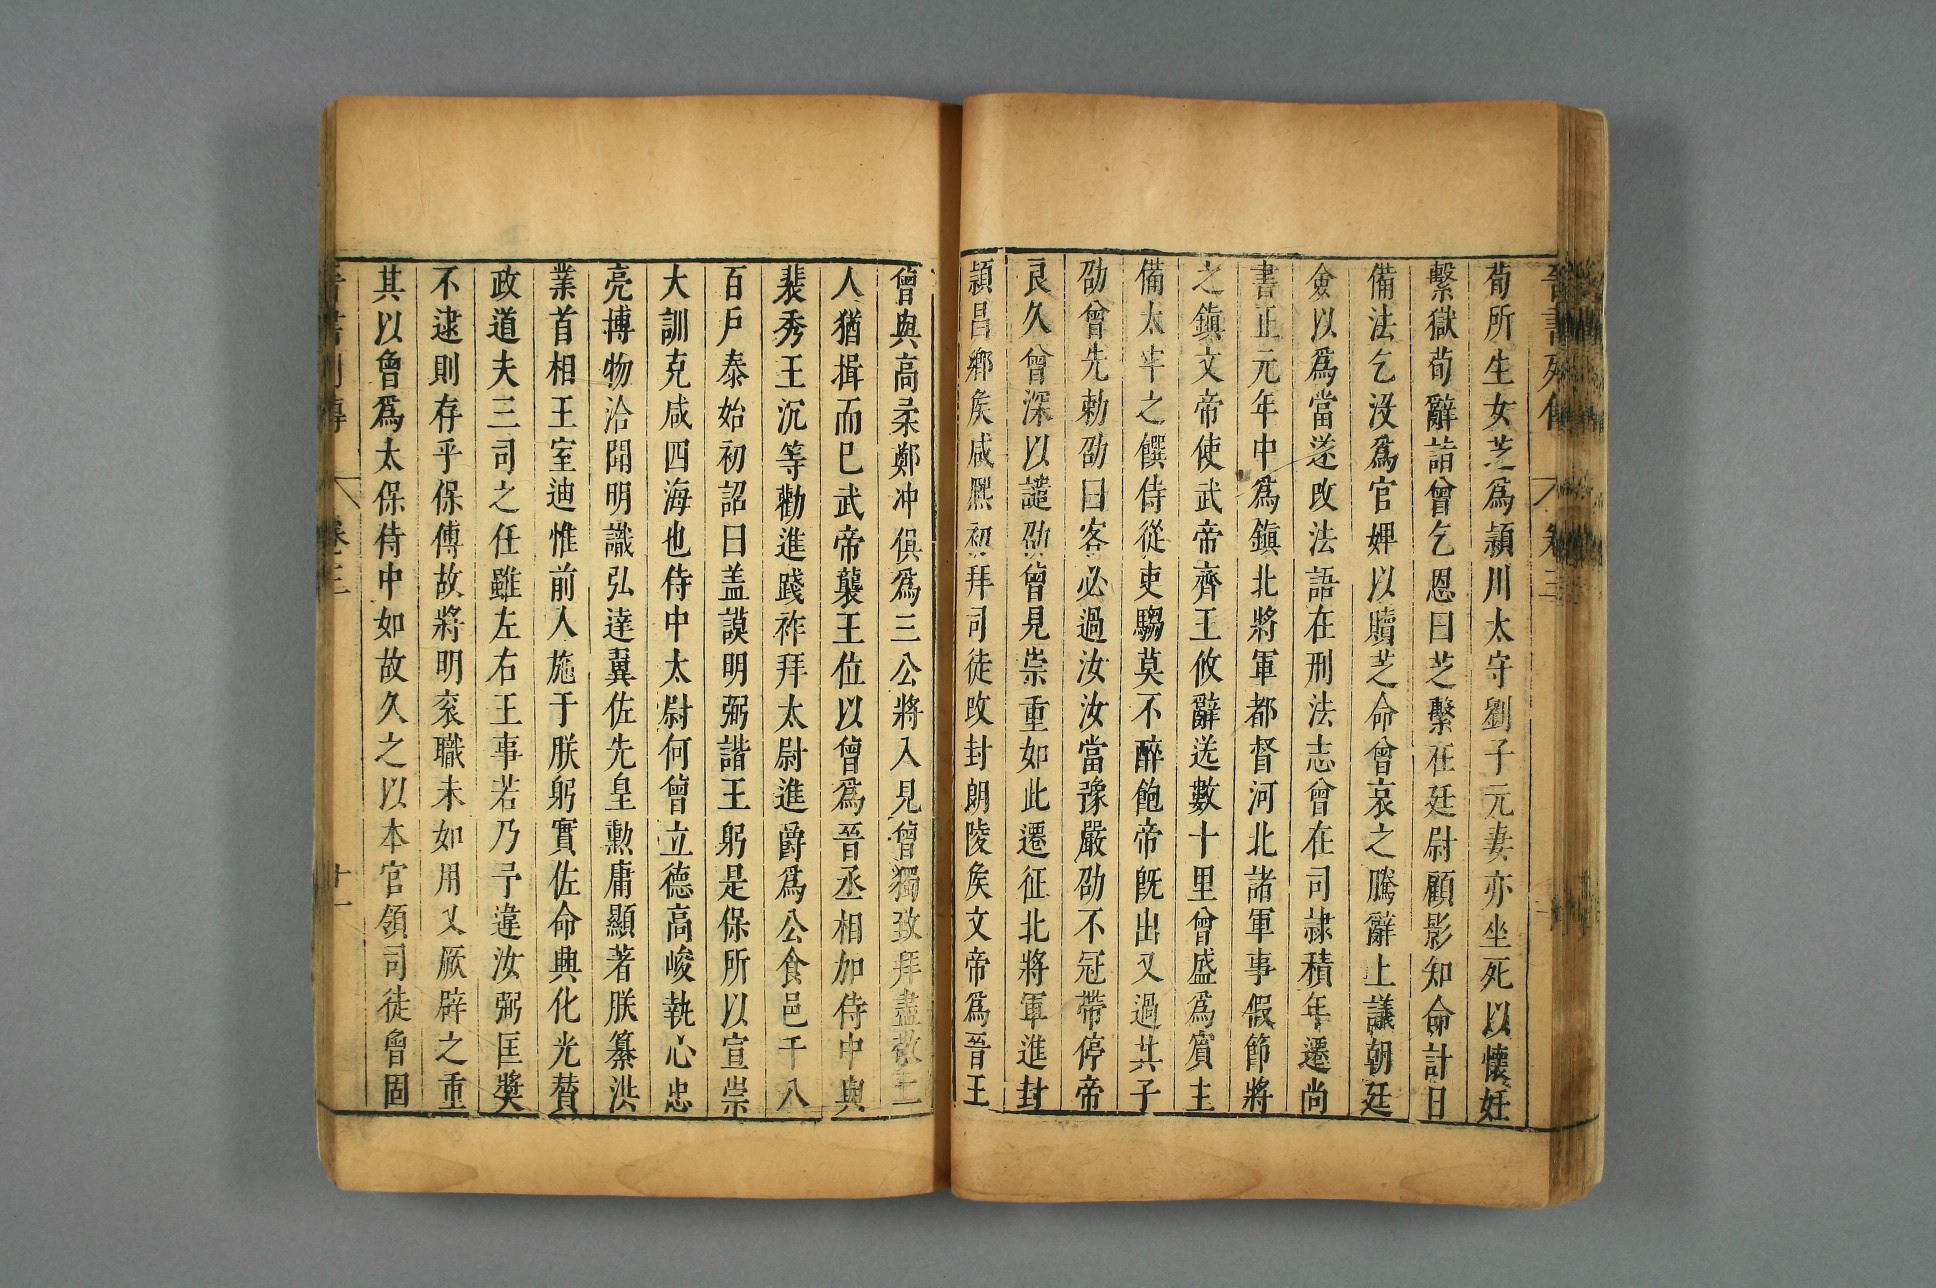 晉書列傳 卷三
荀所生女芝爲潁川太守劉子元妻亦坐死以懷妊
繫獄荀辭詣曾乞恩曰芝繫在廷尉顧影知命計日
備法乞没爲官婢以贖芝命曾哀之騰辭上議朝廷
僉以爲當遂攺法語在刑法志曾在司隷積年遷尚
書正元年中爲鎮北將軍都督河北諸軍事假節將
之鎮文帝使武帝齊王攸辭送數十里曾盛爲賓主
備太牢之饌侍從吏騶莫不醉飽帝旣出又過其子
劭曾先勅劭曰客必過汝汝當豫嚴劭不冠帶停帝
良久曾深以譴劭曾見崇重如此遷征北將軍進封
潁昌鄉矦咸熙初拜司徒攺封朗陵矦文帝爲晉王
曾與高柔鄭冲俱爲三公將入見曾獨致拜盡敬二
人猶揖而已武帝襲王位以曾爲晉丞相加侍中與
裴秀王沉等勸進踐祚拜太尉進爵爲公食邑千八
百戶泰始初詔曰盖謨明弼諧王躬是保所以宣崇
大訓克咸四海也侍中太尉何曾立德高峻執心忠
亮博物洽聞明識弘達翼佐先皇勲庸顯著朕纂洪
業首相王室迪惟前人施于朕躬實佐命典化光贊
政道夫三司之任雖左右王事若乃予違汝弼匡奬
不逮則存乎保傅故將明衮職未如用乂厥辟之重
其以曾爲太保侍中如故久之以本官領司徒曾固
晉書列傳 卷三 十一